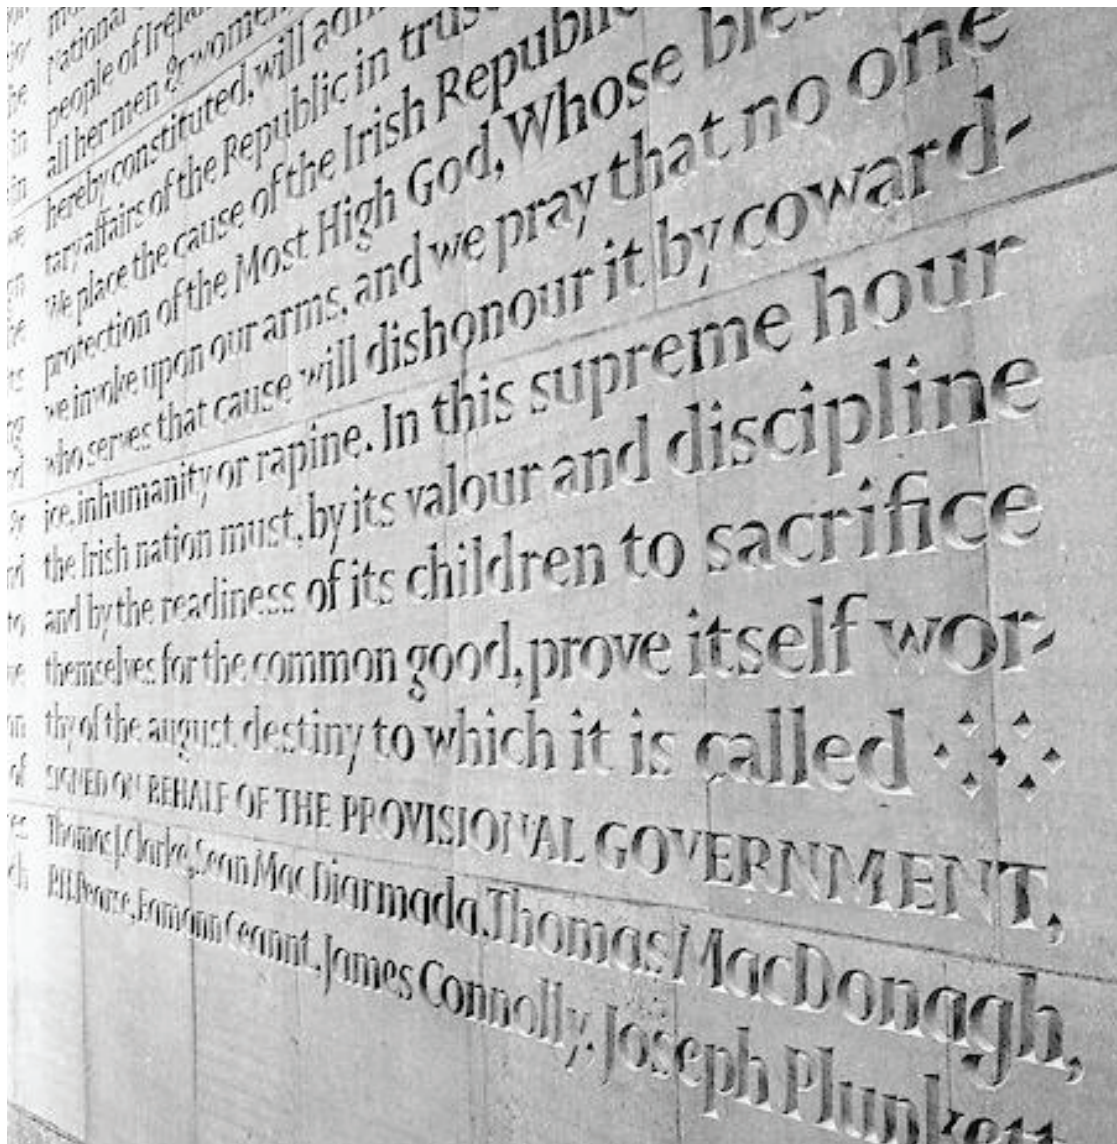 national
people of Irelan
all her men & women
hereby constituted, will adm
tary affairs of the Republic in trust
We place the cause of the Irish Republic
protection of the Most High God, Whose bles
we invoke upon our arms, and we pray that no one
who serves that cause will dishonour it by coward-
ice, inhumanity or rapine. In this supreme hour
the Irish nation must, by its valour and discipline
and by the readiness of its children to sacrifice
themselves for the common good, prove itself wor-
thy of the august destiny to which it is called
SIGNED ON BEHALF OF THE PROVISIONAL GOVERNMENT,
Thomas J. Clarke, Sean Mac Diarmada, Thomas MacDonagh,
P.H. Pearse, Eamonn Ceannt, James Connolly, Joseph Plunkett